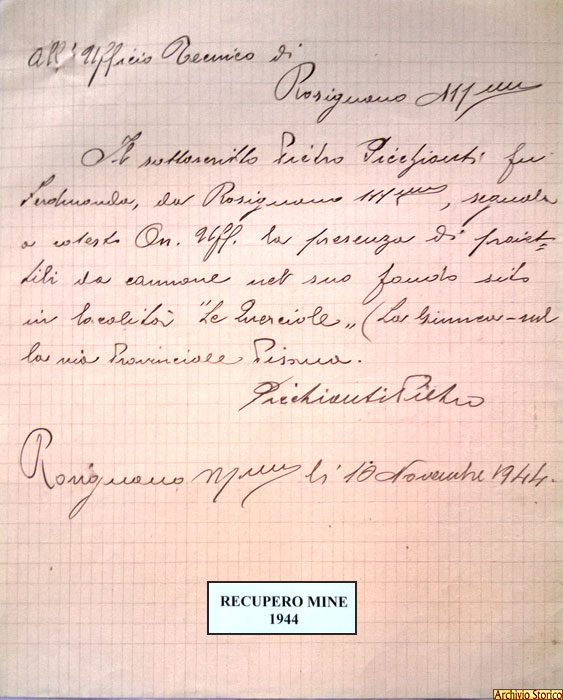 All' Ufficio Tecnico di
Rosignano Mmo
Il sottoscritto Pietro Picchianti fu
Ferdinando, da Rosignano Mmo, segnala
a cotesto On. Uff. la presenza di proiet-
tili da cannone nel suo fondo sito
in località "Le Querciole" (La
la via Provinciale Pisana.
Picchianti Pietro
Rosignano Mmo li 10 Novembre 1944.
RECUPERO MINE
1944
Archivio Storico